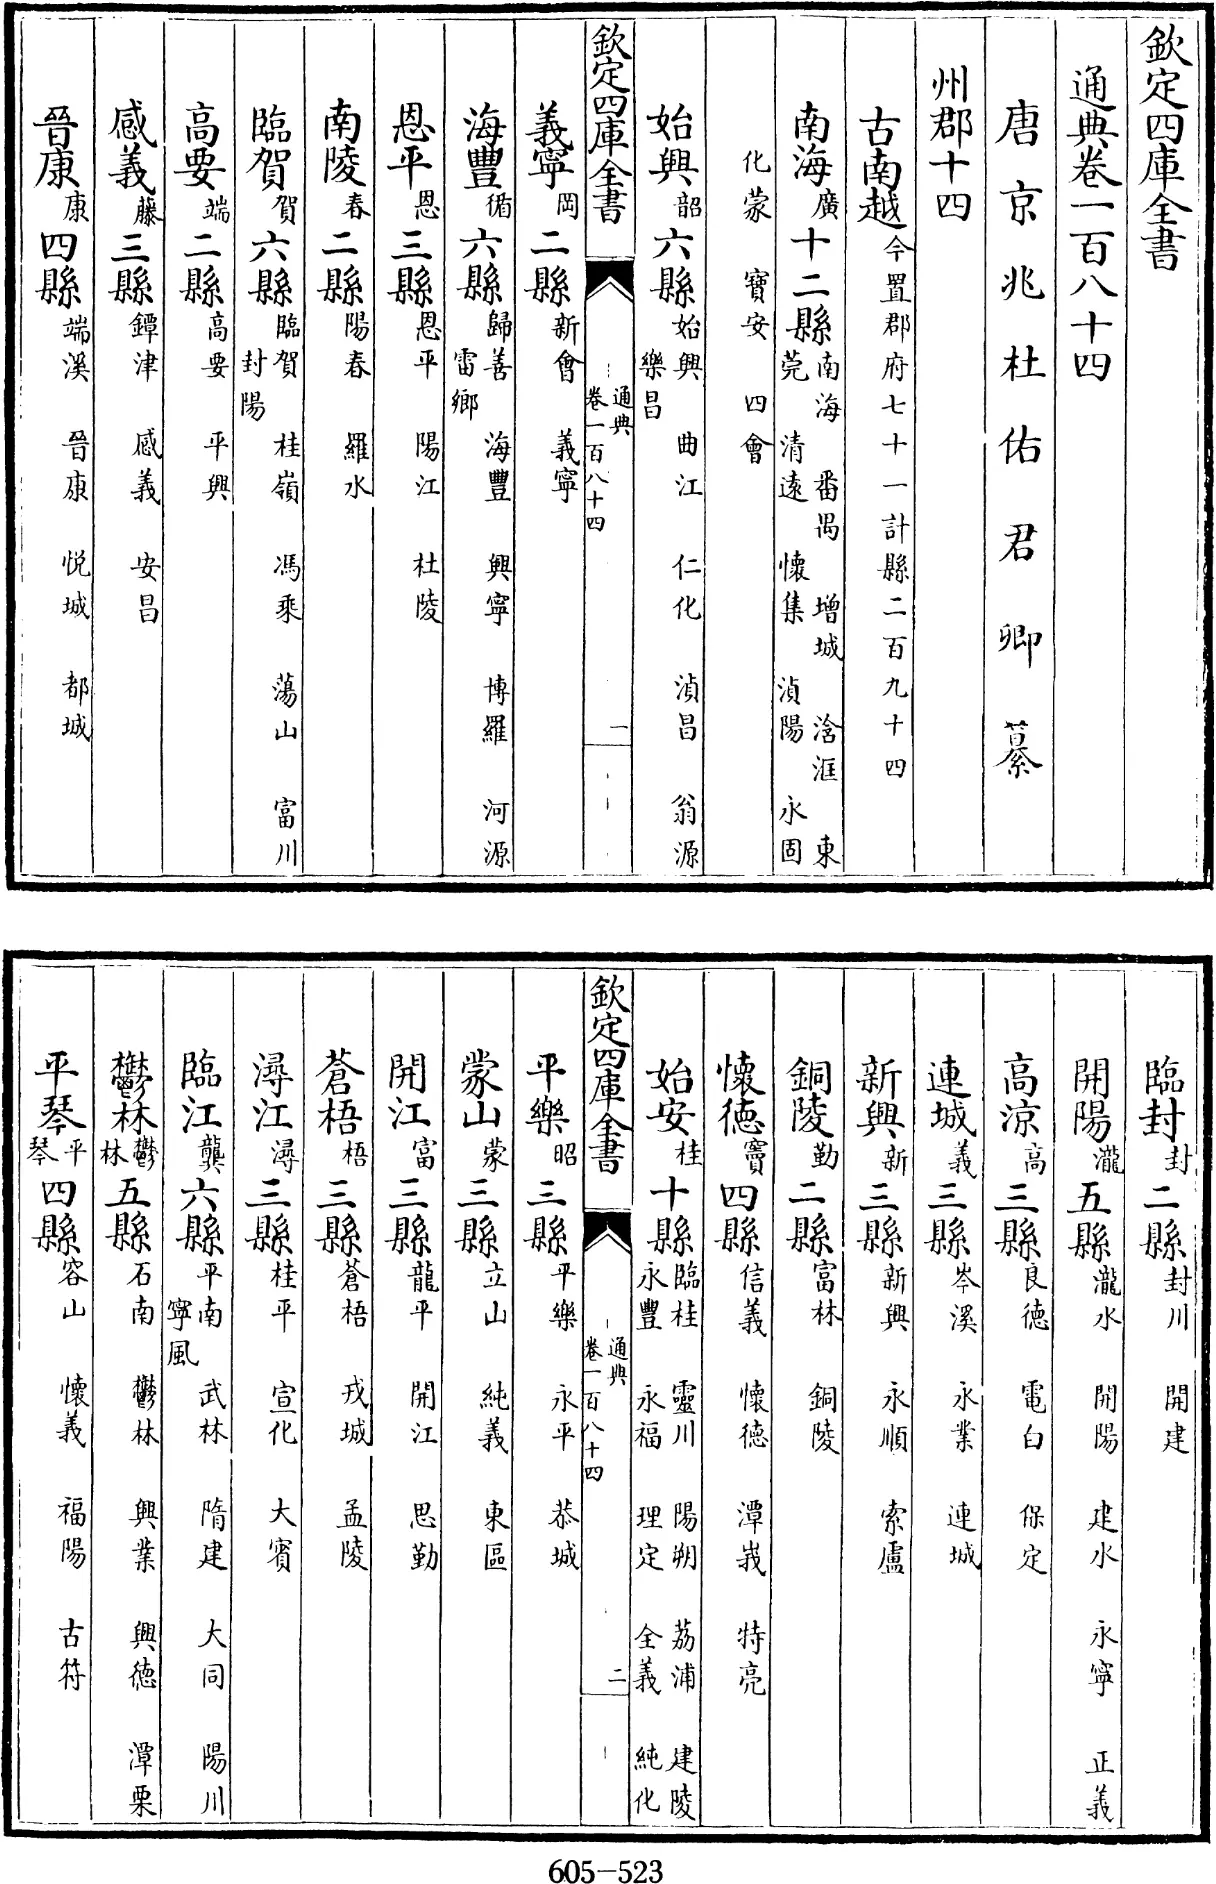 欽定四庫全書
通典卷一百八十四
唐京兆杜佑君卿纂
州郡十四
古南越今置郡府七十一計縣二百九十四
南海廣十二縣南海 番禺 增城 浛洭 東莞 清遠 懷集 湞陽 永固
化蒙 寶安 四會
始興韶六縣始興 曲江 仁化 湞昌 翁源 樂昌
欽定四庫全書 通典 卷一百八十四 一
義寧岡二縣新會 義寧
海豐循六縣歸善 海豐 興寧 博羅 河源 雷鄉
恩平恩三縣恩平 陽江 杜陵
南陵春二縣陽春 羅水
臨賀賀六縣臨賀 桂嶺 馮乘 蕩山 富川 封陽
高要端二縣高要 平興
感義藤三縣鐔津 感義 安昌
晉康康四縣端溪 晉康 悦城 都城
臨封封二縣封川 開建
開陽瀧五縣瀧水 開陽 建水 永寧 正義
高涼高三縣良德 電白 保定
連城義三縣岑溪 永業 連城
新興新三縣新興 永順 索盧
銅陵勤二縣富林 銅陵
懷德竇四縣信義 懷德 潭峩 特亮
始安桂十縣臨桂 靈川 陽朔 荔浦 建陵 永豐 永福 理定 全義 純化
欽定四庫全書 通典 卷一百八十四 二
平樂昭三縣平樂 永平 恭城
蒙山蒙三縣立山 純義 東區
開江富三縣龍平 開江 思勤
蒼梧梧三縣蒼梧 戎城 孟陵
潯江潯三縣桂平 宣化 大賓
臨江龔六縣平南 武林 隋建 大同 陽川 寧風
鬱林鬱林五縣石南 鬱林 興業 興德 潭栗
平琴平琴四縣容山 懷義 福陽 古符
605-523